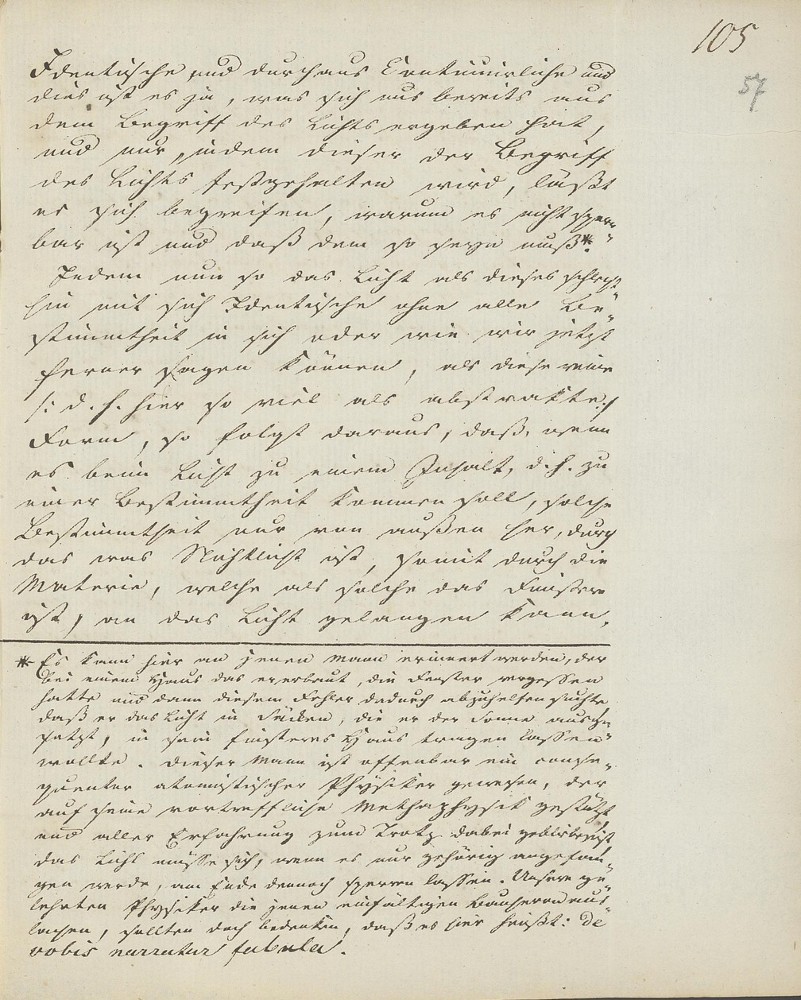 105
57
Identische und durchaus Continuirliche und
dies ist es ja, was sich uns bereits aus
dem Begriff des Lichts ergeben hat,
und nur, indem dieser der Begriff
des Lichts festgehalten wird, läßt
es sich begreifen, warum es nicht sperr-
bar ist und daß dem so seyn muß*.
Indem nun so das Licht als dieses schlecht-
hin mit sich Identische ohne alle Be-
stimmtheit in sich oder wie wir jetzt
ferner sagen können, als diese reine
/: d. h. hier so viel als abstrakte :/
Form, so folgt daraus, daß, wenn
es beim Licht zu einem Inhalt, d. h. zu
einer Bestimmtheit kommen soll, solche
Bestimmtheit nur von außen her, durch
das was Nichtlicht ist, somit durch die
Materie, welche als solche das Finstere
ist, an das Licht gelangen kann.
* Es kann hier an jenen Mann erinnert werden, der
bei einem Haus das er erbaut, die Fenster vergessen
hatte und dann diesem Fehler dadurch abzuhelfen suchte
daß er das Licht in Säcken, die er der Sonne ausge-
setzt, in sein finsteres Haus tragen lassen
wollte. Dieser Mann ist offenbar ein conse-
quenter atomistischer Physiker gewesen, der
auf seine vortreffliche Methaphysik gestützt
und aller Erfahrung zum Trotz dabei geblieben ist
das Licht müsse sich, wenn es nur gehörig angefan-
gen werde, am Ende dennoch sperren lassen. Unsere ge-
lehrten Physiker die jenen einfältigen Bauherrn aus-
lachen, sollten doch bedenken, daß es hier heißt: de
vobis narratur fabula.